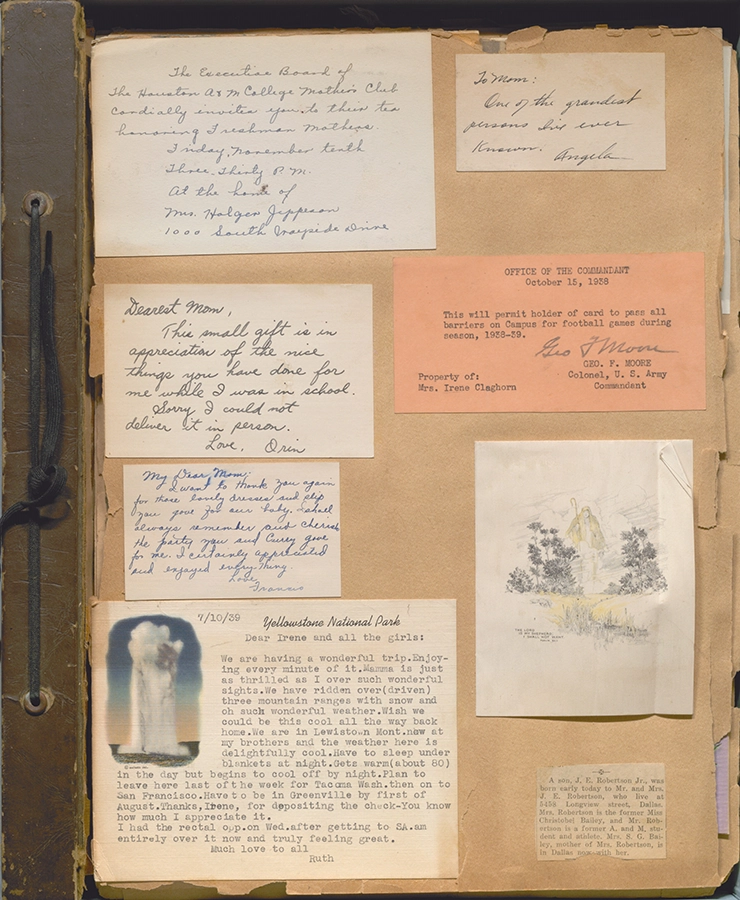 The Executive Board of
The Houston A & M College Mother's Club
Cordially invites you to their tea
honoring Freshman Mothers.
Friday, November tenth
Three Thirty P.M.
At the home of
Mrs. Holger Jeppeson
1000 South Wayside Drive
To Mom:
One of the grandest
persons I've ever
known.
Angela
Dearest Mom,
This small gift is in
appreciation of the nice
things you have done for
me while I was in school.
Sorry I could not
deliver it in person.
Love, Orin
OFFICE OF THE COMMANDANT
October 15, 1938
This will permit holder of card to pass all
barriers on Campus for football games during
season, 1938-39.
Geo F Moore
GEO. F. MOORE
Colonel, U. S. Army
Commandant
Property of:
Mrs. Irene Claghorn
My Dear Mom:
I want to thank you again
for those lovely dresses and slip
you gave for our baby. I shall
always remember and cherish
the party you and Curry gave
for me. I certainly appreciated
and enjoyed every thing.
Love,
Francis
THE LORD
IS MY SHEPHERD
I SHALL NOT WANT
7/10/39 Yellowstone National Park
Dear Irene and all the girls:
We are having a wonderful trip.Enjoy-
ing every minute of it.Mamma is just
as thrilled as I over such wonderful
sights.We have ridden over(driven)
three mountain ranges with snow and
oh such wonderful weather.Wish we
could be this cool all the way back
home.We are in Lewistown Mont.now at
my brothers and the weather here is
delightfully cool.Have to sleep under
blankets at night.Gets warm(about 80)
in the day but begins to cool off by night.Plan to
leave here last of the week for Tacoma Wash.then on to
San Francisco.Have to be in Greenville by first of
August.Thanks,Irene, for depositing the check-You know
how much I appreciate it.
I had the rectal opp.on Wed.after getting to SA.am
entirely over it now and truly feeling great.
Much love to all
Ruth
A son, J. E. Robertson Jr., was
born early today to Mr. and Mrs.
J. E. Robertson, who live at
5459 Longview street, Dallas.
Mrs. Robertson is the former Miss
Christobel Bailey, and Mr. Rob-
ertson is a former A. and M. stu-
dent and athlete. Mrs. S. G. Bai-
ley, mother of Mrs. Robertson, is
in Dallas now with her.